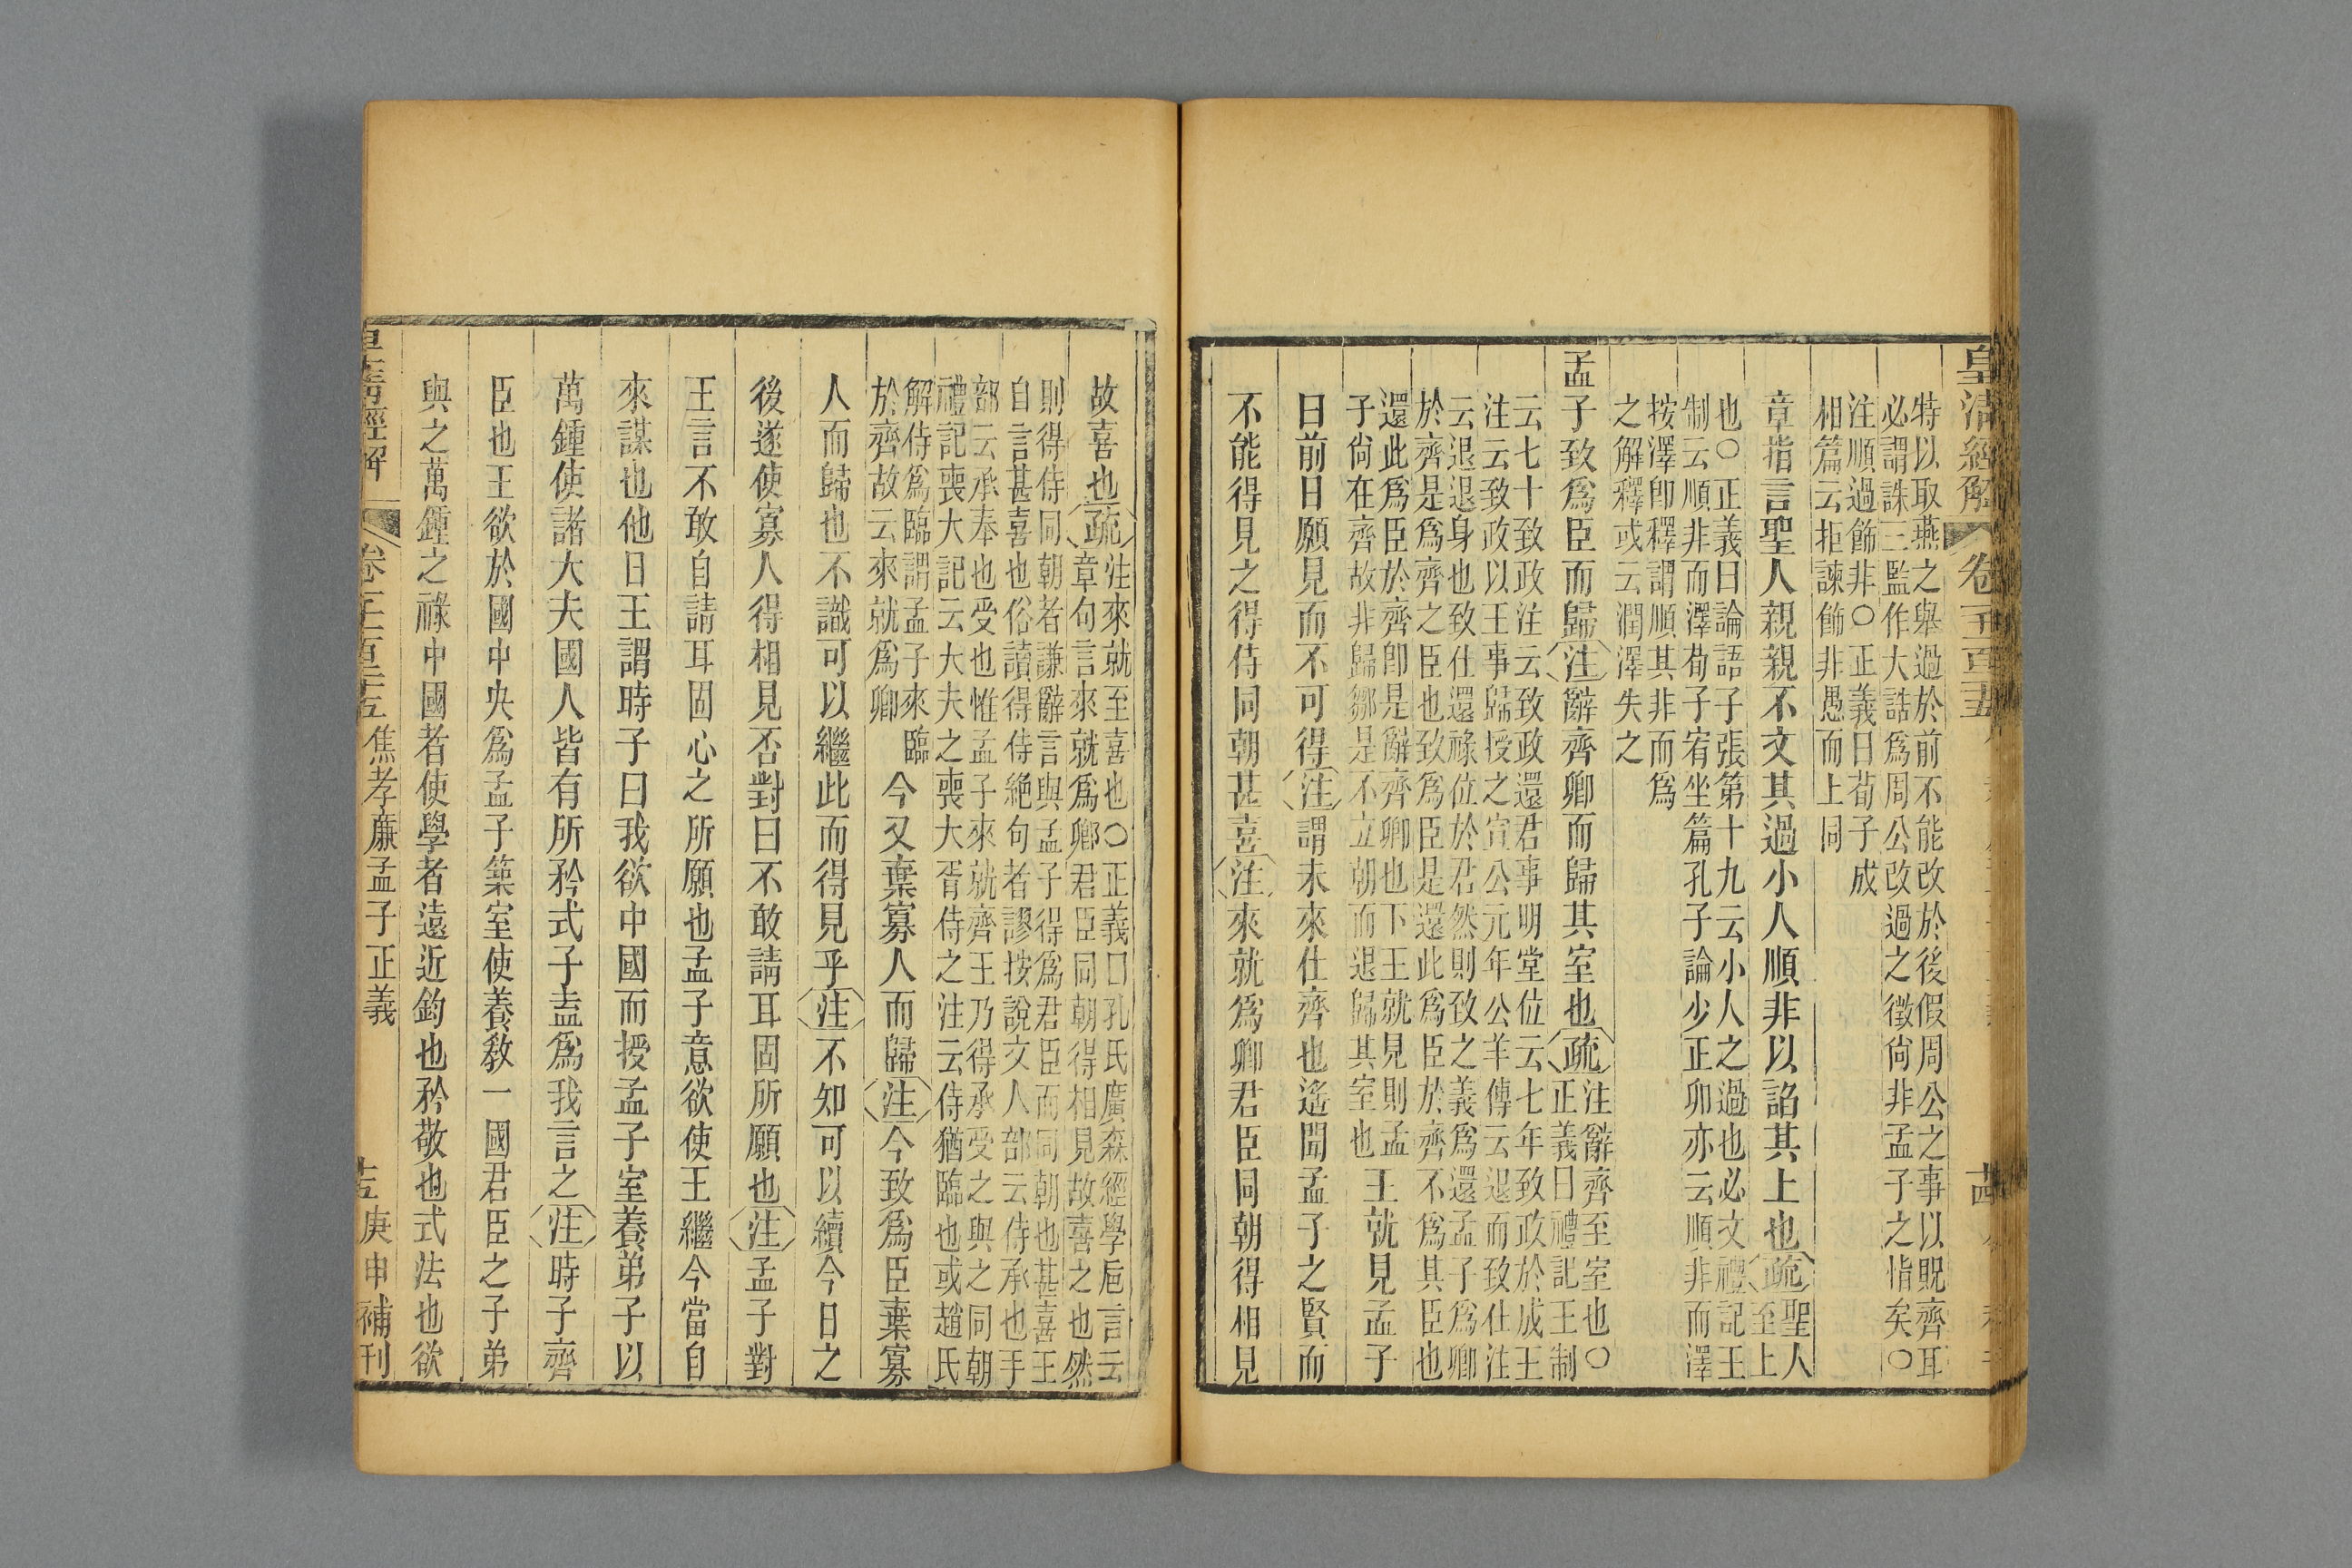 皇清經解
卷一千一百二十五
古
特以取燕之舉過於前不能改於後假周公之事以貺齊耳
必謂誅三監作大誥爲周公改過之徵尙非孟子之恉矣○
注順過飾非○正義曰荀子成
相篇云拒諫飾非愚而上同
章指言聖人親親不文其過小人順非以諂其上也疏聖人
至上
也○正義曰論語子張第十九云小人之過也必文禮記王
制云順非而澤荀子宥坐篇孔子論少正卯亦云順非而澤
按澤卽釋謂順其非而爲
之解釋或云潤澤失之
孟子致爲臣而歸注辭齊卿而歸其室也疏注辭齊至室也○
正義曰禮記王制
云七十致政注云致政還君事明堂位云七年致政於成王
注云致政以王事歸授之宣公元年公羊傳云退而致仕注
云退退身也致仕還祿位於君然則致之義爲還孟子爲卿
於齊是爲齊之臣也致爲臣是還此爲臣於齊不爲其臣也
還此爲臣於齊卽是辭齊卿也下王就見則孟
子尙在齊故非歸鄒是不立朝而退歸其室也
王就見孟子
曰前日願見而不可得注謂未來仕齊也遙聞孟子之賢而
不能得見之得侍同朝甚喜注來就爲卿君臣同朝得相見
故喜也疏注來就至喜也○正義曰孔氏廣森經學卮言云
章句言來就爲卿君臣同朝得相見故喜之也然
則得侍同朝者謙辭言與孟子得爲君臣而同朝也甚喜王
自言甚喜也俗讀得侍絕句者謬按說文人部云侍承也手
部云承奉也受也惟孟子來就齊王乃得承受之與之同朝
禮記喪大記云大夫之喪大胥侍之注云侍猶臨也或趙氏
解侍爲臨謂孟子來臨
於齊故云來就爲卿
今又棄寡人而歸注今致爲臣棄寡
人而歸也不識可以繼此而得見乎注不知可以續今日之
後遂使寡人得相見否對曰不敢請耳固所願也注孟子對
王言不敢自請耳固心之所願也孟子意欲使王繼今當自
來謀也他日王謂時子曰我欲中國而授孟子室養弟子以
萬鍾使諸大夫國人皆有所矜式子盍爲我言之注時子齊
臣也王欲於國中央爲孟子築室使養教一國君臣之子弟
與之萬鍾之祿中國者使學者遠近鈞也矜敬也式法也欲
皇清經解
卷一千一百二十五
焦孝廉孟子正義
庚申補刊